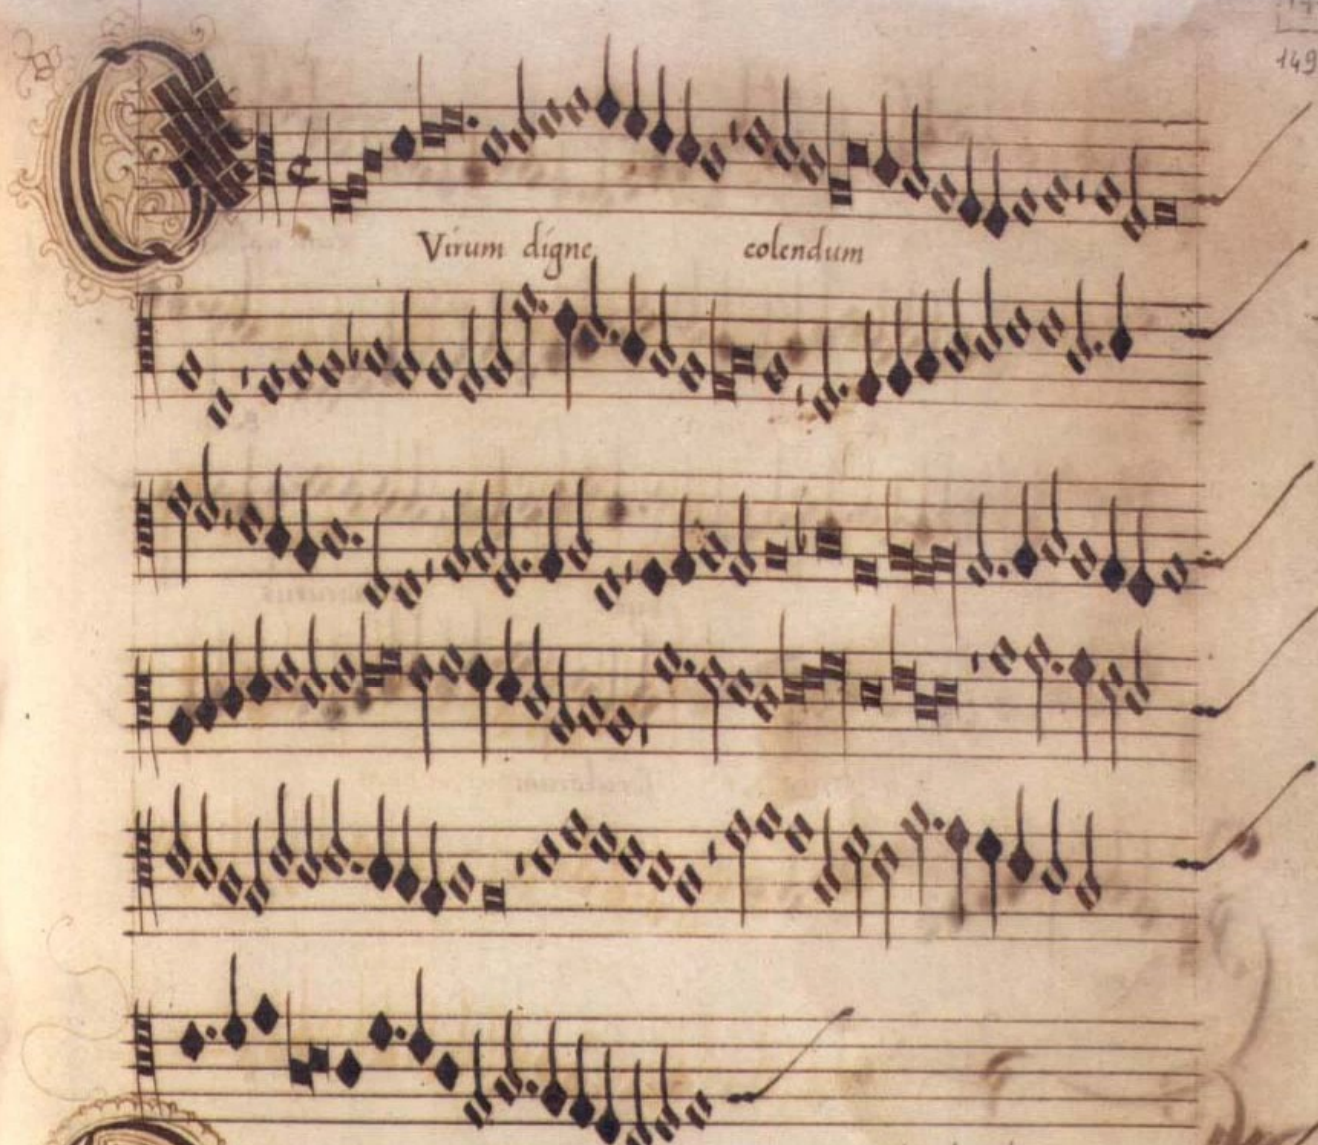 149
Virum digne colendum